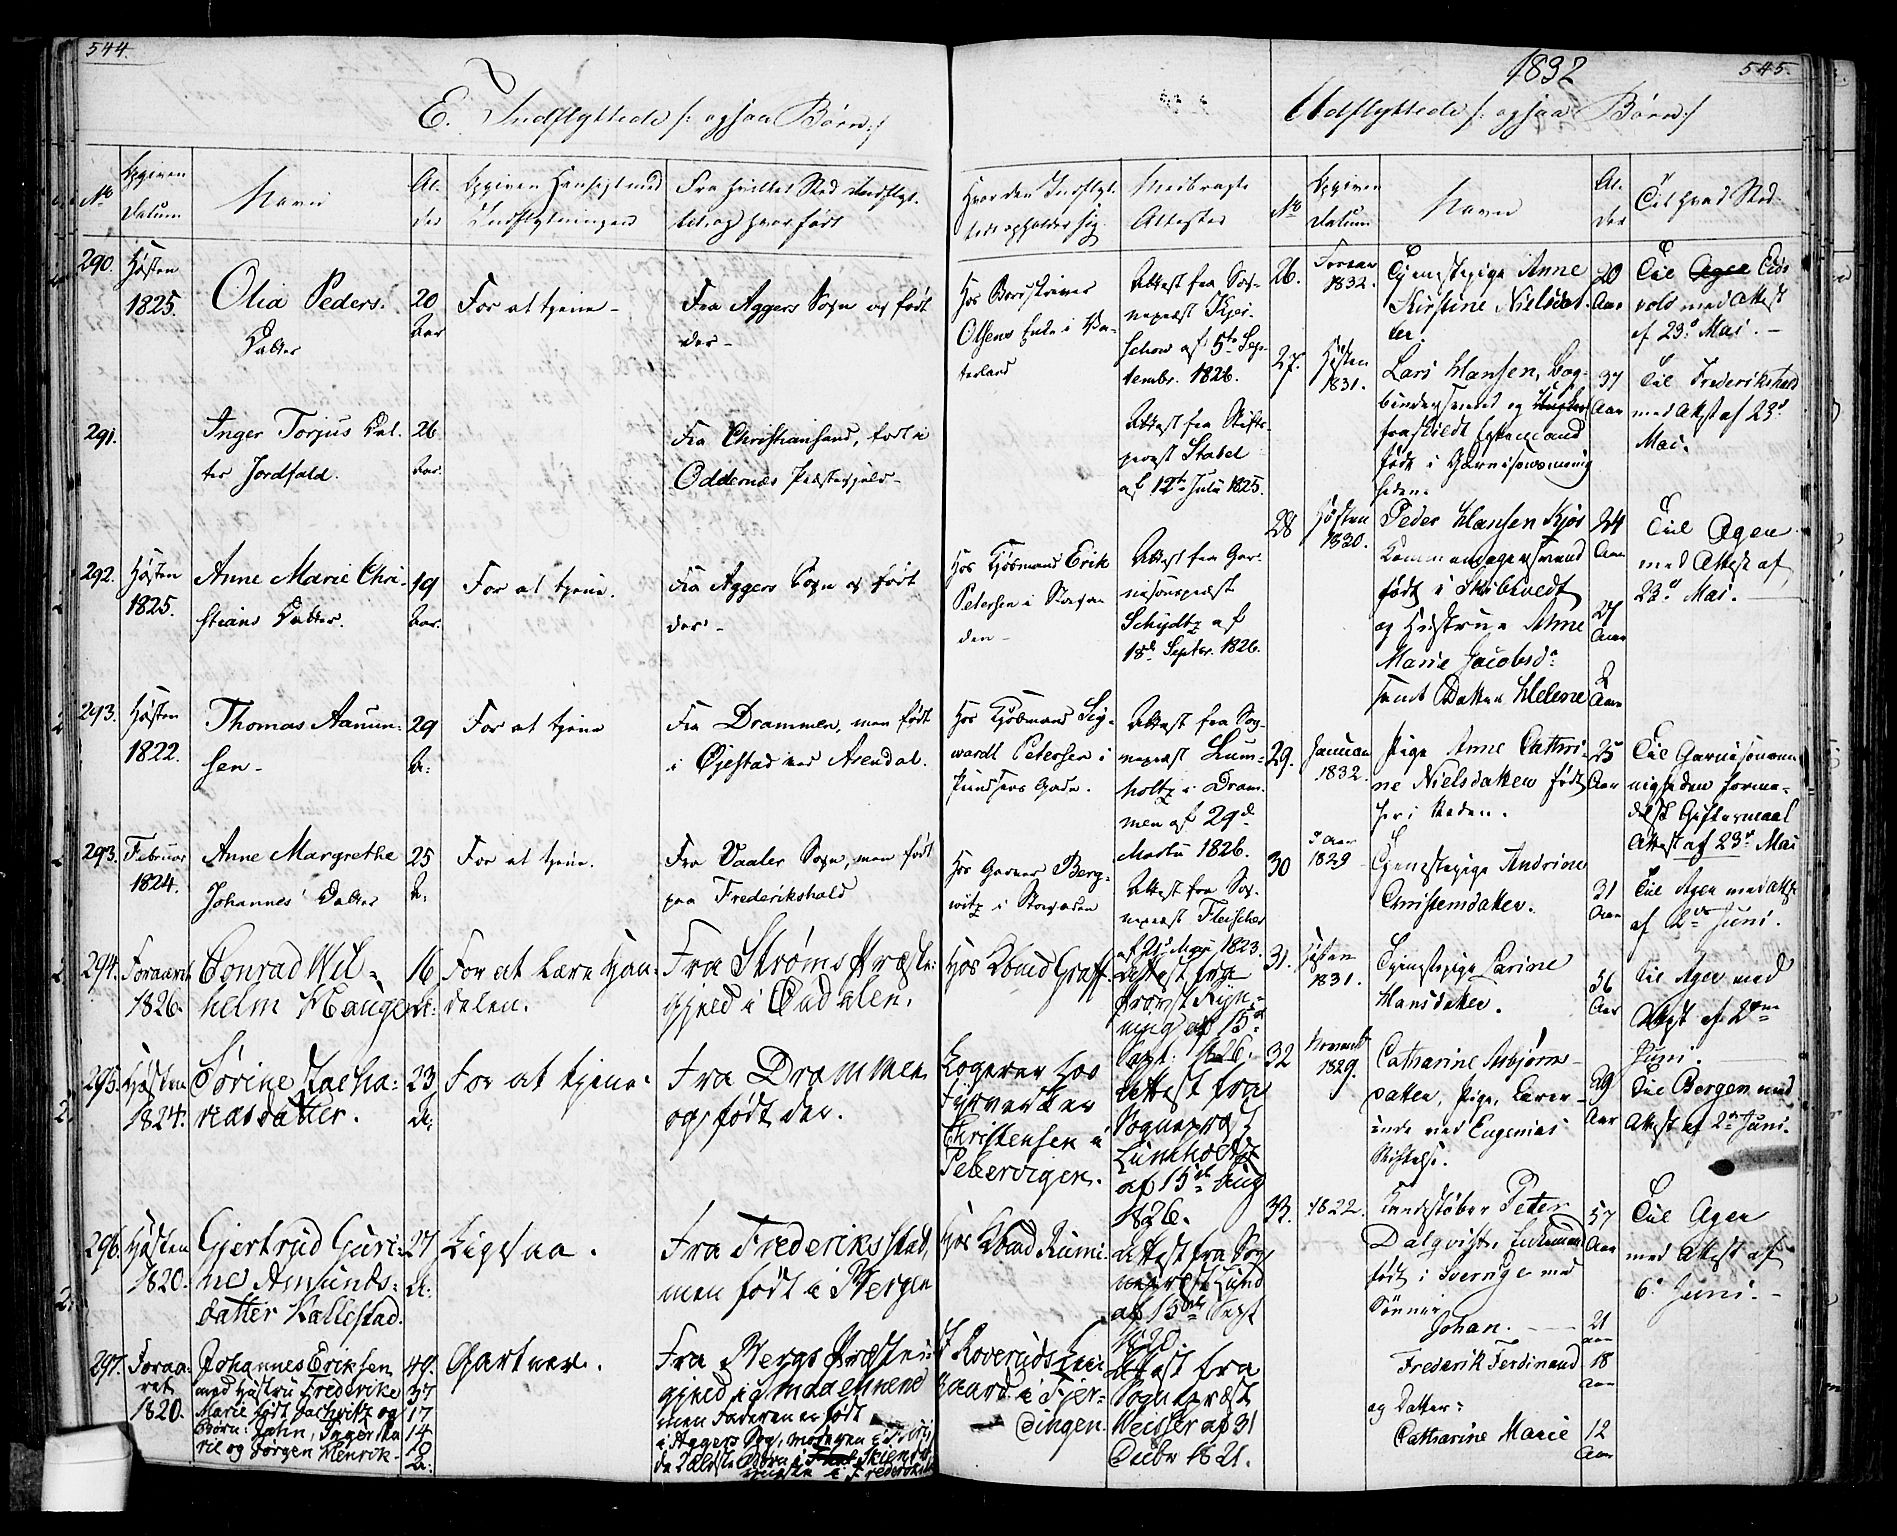 544.
E. Indflyttede /: ogsaa Børn:/
No
Opgiven Datum
Navn
Al-
der
Opgiven Hensigt med
Indflytningen
Fra hvilket Sted indflyt-
tet, og hvor født
Hvor den Indflyt-
tede opholder sig.
Medbragte
Attester
290. Høsten
1825.
Olia Peders
Datter
20
Aar
For at tjene
Fra Aggers Sogn og født
der
Olsens Enke i Va-
terland
Attest fra Sog-
nepræst Kjer-
schow af 5te Sep-
tembr. 1826.
291.
Inger Torjus Dat-
ter Jordfald.
26
Aar.
Fra Christiansand, født i
Oddernæs Præstegjeld
Attest fra Stifts-
provst Stabel
af 12te Juli 1825.
292. Høsten
1825.
Anne Marie Chri-
stians Datter.
19
Aar.
For at tjene.
Fra Aggers Sogn og født
der
Hos Kjøbmand Erik
Petersen i Storga-
den
Attest fra Gar-
nisonspræst
Schydtz af
18de Septbr. 1826.
293. Høsten
1822.
Thomas Aanun-
sen
29
A:
For at tjene
Fra Drammen, men født
i Øjestad ved Arendal.
Hos Kjøbmand Sig-
wardt Petersen i
Attest fra Sog-
nepræst Lum-
holtz i Dram-
men af 29de
Martii 1826.
293. Februar
1824.
Anne Margrethe
Johannes Datter
25
A:
For at tjene.
Fra Vaaler Sogn, men født
paa Frederikshald
Hos Garver Berg-
witz i Storgaden
Attest fra Sog-
nepræst Fleischer
294. Foraaret
1826.
Conrad Wil-
helm Hauge
16
A:
For at lære Han-
delen.
Fra Strøms Præste-
gjeld i Oudalen.
Hos Kbmd Graff
Attest fra
Provst Ryn-
ning af 15de
Sept. 1826.
295. Høsten
1824.
Sørine Zacha-
riasdatter.
23
A:
For at tjene.
Fra Drammen
og født der.
Logerer hos
Christensen i
Pebervigen.
Attest fra
Sognepræst
Lumholtz
af 15de Aug
1826.
296. Høsten
1820.
Gjertrud Guri-
ne Amunds-
datter Kallestad.
27
A:
Ligesaa.
Fra Frederiksstad,
men født i Bergen
Attest fra Sog
nepræst Lund
af 15de Sept
1820.
297. Foraa-
ret
1820.
Johannes Eriksen
med Hustru Frederike
Børn: John, Inger Ma
ril og Jørgen Henrik
40.
37
17
14
Gartner.
Fra Bergs Præste-
gjeld i Smaalenene
men Faderen er født
i Aggers Sog, moderen i
Attest fra
Sognepræst
Weisser af 31
Decbr 1821.
1832
545.
Udflyttede /: ogsaa Børn:/
No
Opgiven
Datum
Navn
Al-
der
Til hvad Sted
26.
Foraar
1832.
Tjenestepige Anne
Kirstine Nielsdat-
ter.
20
Aar
Til Eids-
vold med Attest
af 23de Mai.
27.
Høsten
1831.
Lars Hansen, Bog-
bindersvend og
fraskildt Egtemand
født i Garnisonsmenig
heden.
37
Aar
Til Frederikshald
med Attest af 23de
Mai.
28
Høsten
1830.
Peder Hansen Kjøs
født i Skibtvedt
og Hustrue Anne
Marie Jacobsd:
samt Datter Helene
24
Aar
27
Aar
2
Aar
Til Agger
med Attest af
23de Mai.
29.
Januar
1832.
Pige Anne Cathri-
ne Nielsdatter født
her i Staden.
25
Aar
Til Garnisonsme-
nigheden forme-
delst Giftermaal
Attest af 23de Mai
30
1829
Tjenestepige Andrine
Christensdatter.
31
Aar
Til Ager med Attst
af 2den Juni.
31.
Høsten
1831.
Tjenestepige Karine
Hansdatter.
36
Aar
Til Ager med
Attst af 2den
Juni.
32
Novembr
1829.
Catharine Asbjørns-
datter, Pige, Lærer-
inde ved Eugenias
Stiftelse.
29
Aar
Til Bergen med
Attest af 2den Juni.
33.
1822.
Kandestøber Peter
Dalqvist, Enkemand
født i Sverrige med
Sønner
Johan.
Frederik Ferdinand
og Datter:
Catharine Marie
57
Aar
21
Aar
18
Aar
12
Aar
Til Ager
med Attest af
6te Juni.